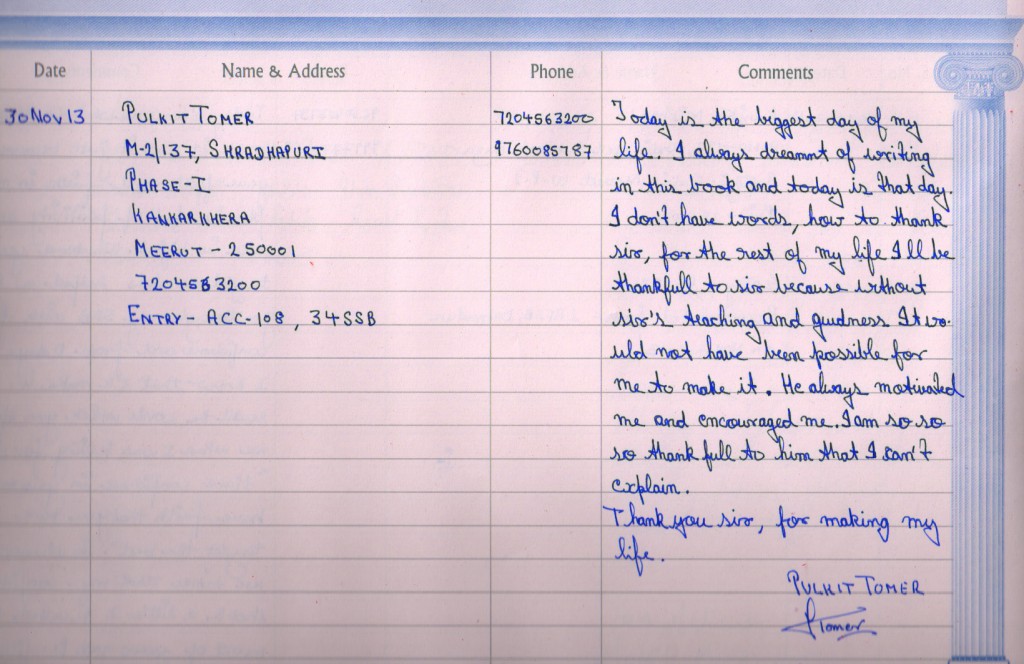 Date Name & Address Phone Comments
30 Nov 13 PULKIT TOMER 7204563200 Today is the biggest day of my
M-2/137, SHRADHAPURI 9760085787 life. I always dreamnt of writing
PHASE-I in this book and today is that day.
KANKARKHERA I don't have words, how to thank
MEERUT - 250001 sir, for the rest of my life I ll be
7204563200 thankfull to sir because without
ENTRY - ACC-108, 34SSB sir's teaching and guidness It wo-
uld not have been possible for
me to make it. He always motivated
me and encouraged me. I am so so
so thankfull to him that I can't
explain.
Thank you sir, for making my
life.
PULKIT TOMER
PTomer